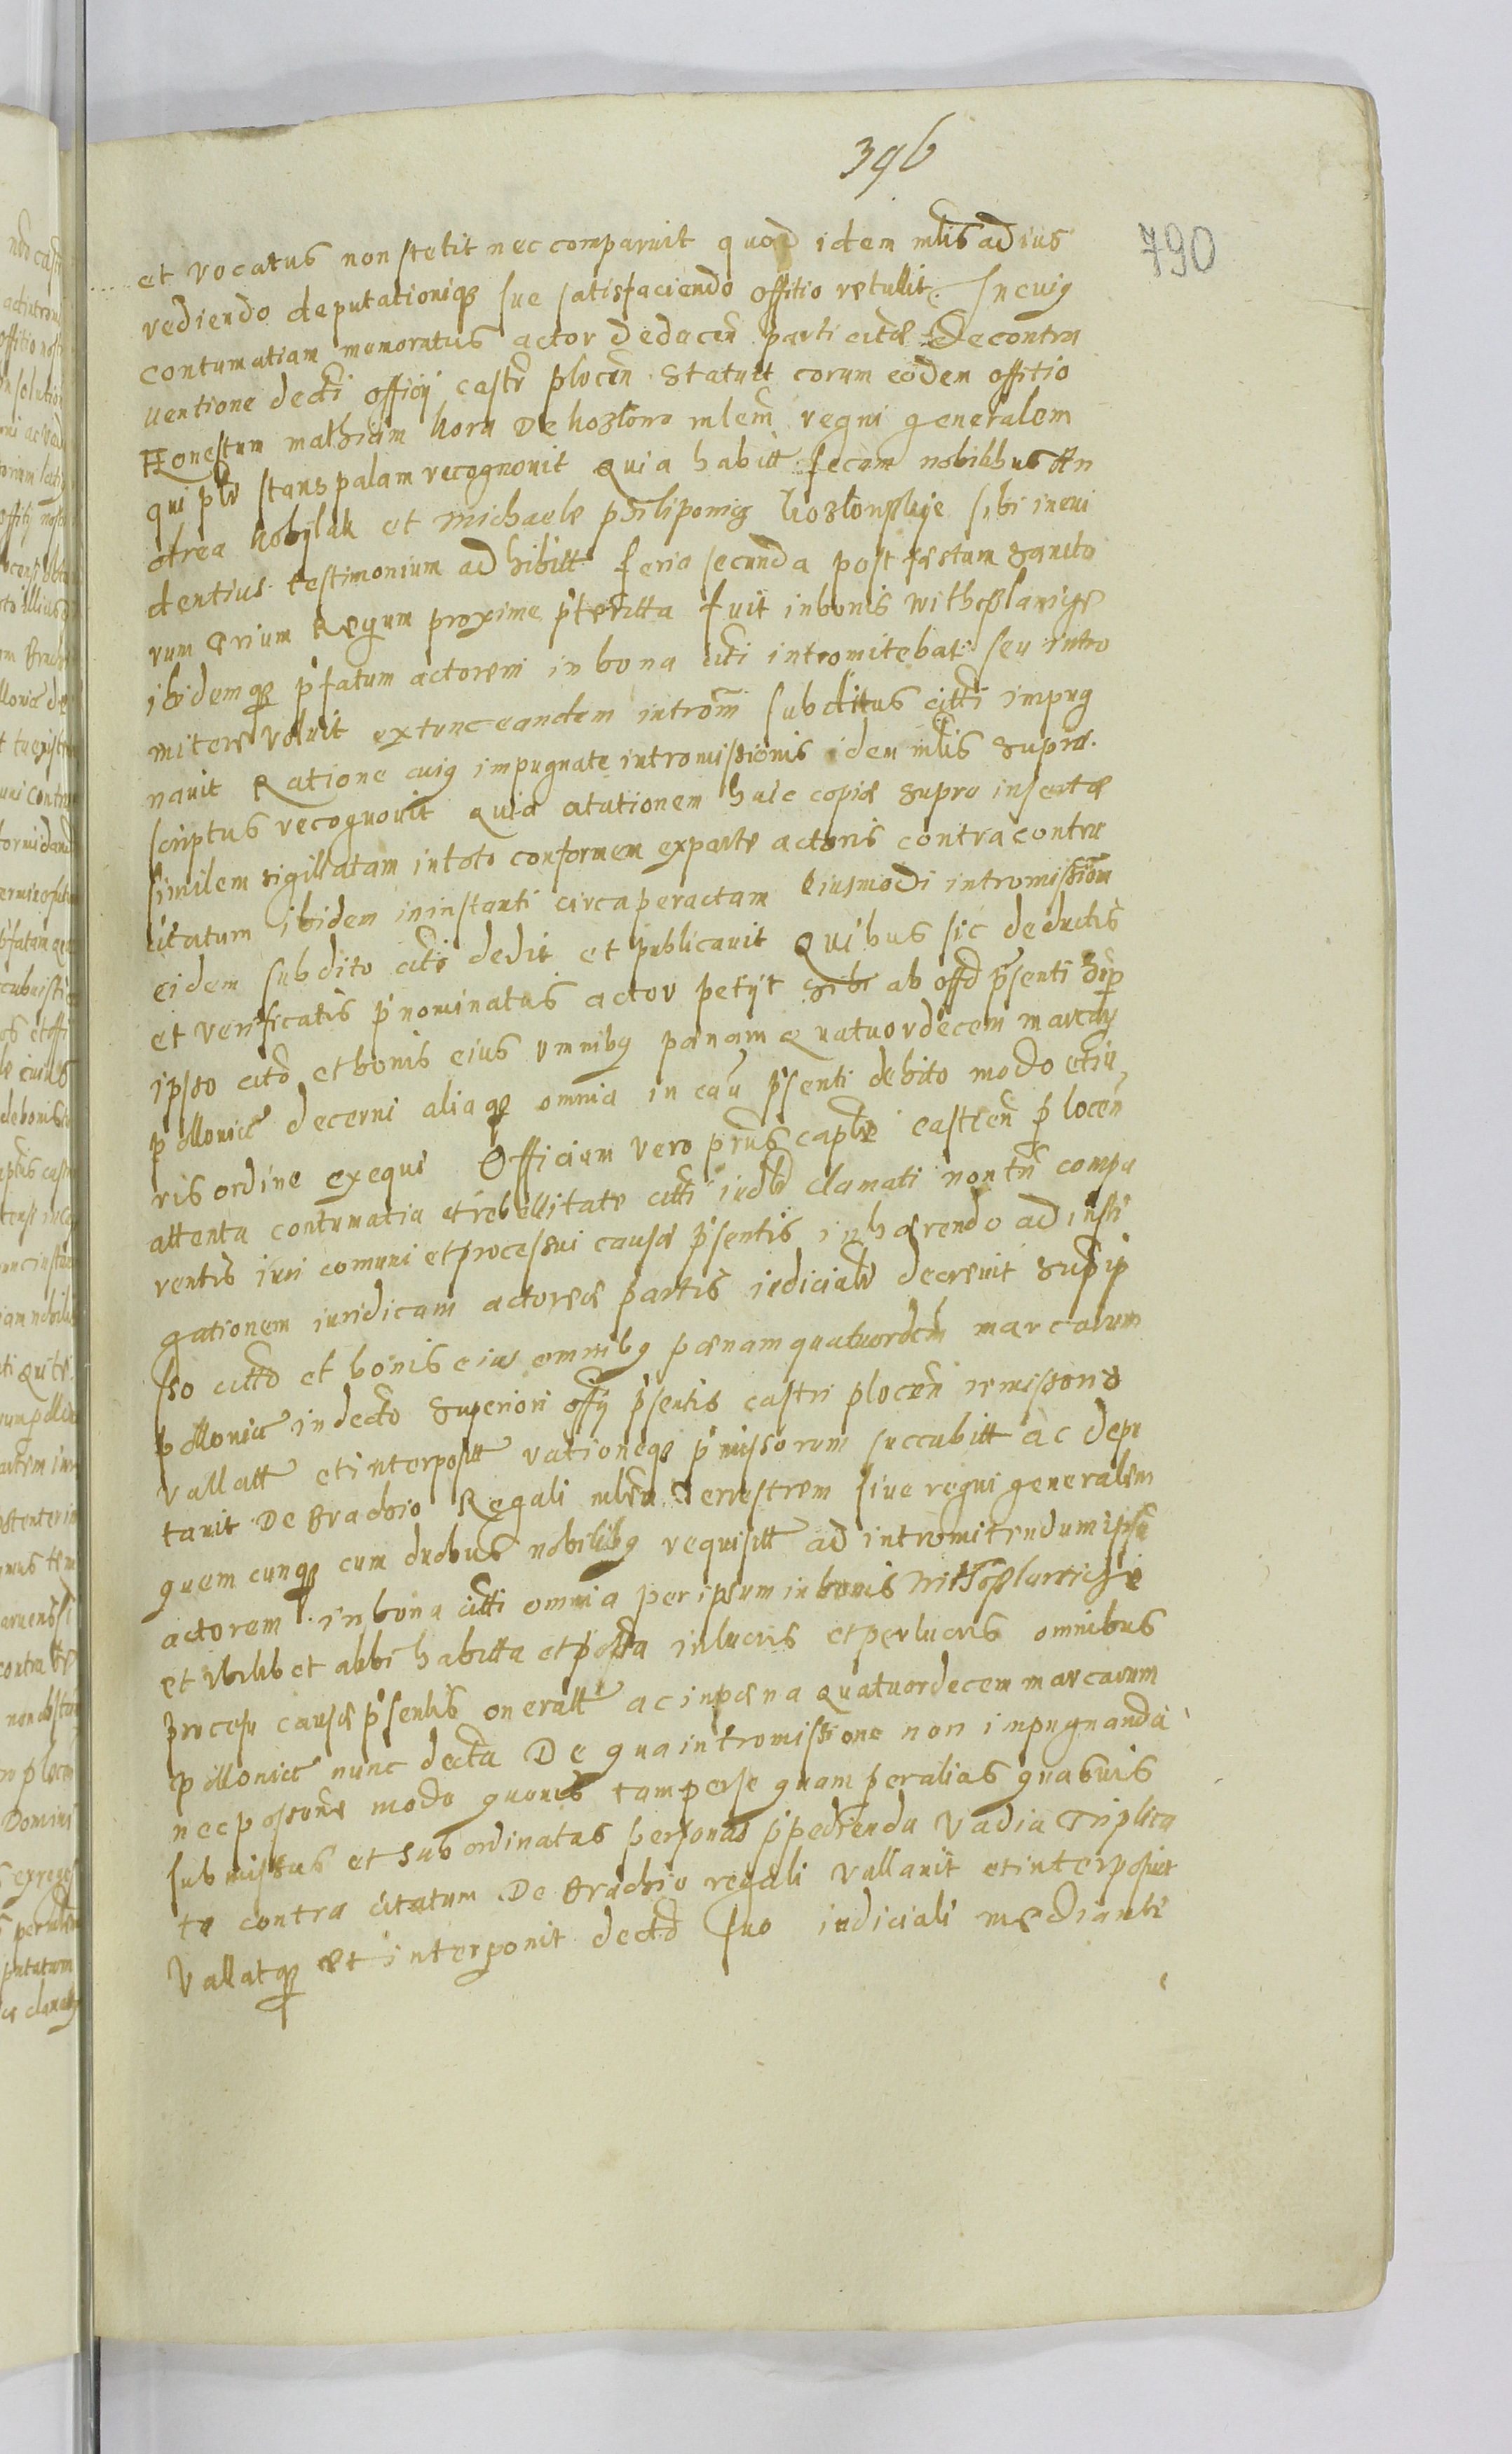 396
790
et vocatus non stetit nec comparuit quod idem mlis ad ius
rediendo deputationiq3 sue satisfaciendo offitio retullit. In cuiq
contumatiam memoratus actor dedacen parti citae De contra
uentione decti officij castr plocen statuit coram eodem offitio
Honestum mathiam kora De kozlowo mlem regni generalem
qui pls stans palam recognouit quia habitt secum nobilibus An
drea kobijlak et michaele philipowicz kozlowskije sibi in eui
dentius testimonium ad hibitt feria secunda post festum sancto
rum Trium Regum proxime pteritta fuit in bonis withoslawicze
ibidemq3 pfatum actorem in bona citti intromitebat seu intro
mitere voluit extunc eandem introm subditus citti impug
nauit Ratione cuiq impugnate intromissionis idem mlis supra
scriptus recognouit quia citationem huic copiae supra insertae
similem sigillatam in toto conformem ex parte actoris contra contra
citatum ibidem in instanti circa peractam eiusmodi intromission
eidem subdito citti dedit et publicauit Quibus sic deductis
et verificatis pnominatus actor petijt sibi ab offo psenti sup
ipso citto et bonis eius omnibq paenam quatuordecem marcar
pollonict decerni aliaq3 omnia in cau psenti debito modo et iu
ris ordine exequi Officium vero prns captle castren plocen
attenta contumatia et rebellitate citti iudle clamati non tn compa
rentis iuri comuni et processui causae psentis inhaerendo ad insti
gationem iuridicam actoreae partis iudicialr decreuit sup ip
sso citto et bonis eius omnibq paenam quatuordecm marcarum
pollonict in decto superiori offij psentis castri plocen irmissone
vallatt et interpositt rationeq3 pmissorum succubitt ac depu
tauit De Brachio Regali mlem Terrestrem siue regni generalem
quem cunq3 cum duobus nobilibq requisitt ad intromitendum ipsu
actorem in bona citti omnia per ipsum in bonis withoslawicze
et vbilibet alibi habitta et possa in lucris et perlucris omnibus
procesu causae psentis oneratt ac in paena quatuordecem marcarum
pollonict nunc decta De qua intromissione non impugnanda
nec possone modo quouis tam per se quam per alias quasuis
submissas et subordinatas personas ppedienda vadia Triplica
ta contra citatum De Brachio regali vallauit et interposuit
Vallatq3 et interponit decto suo iudiciali mediante